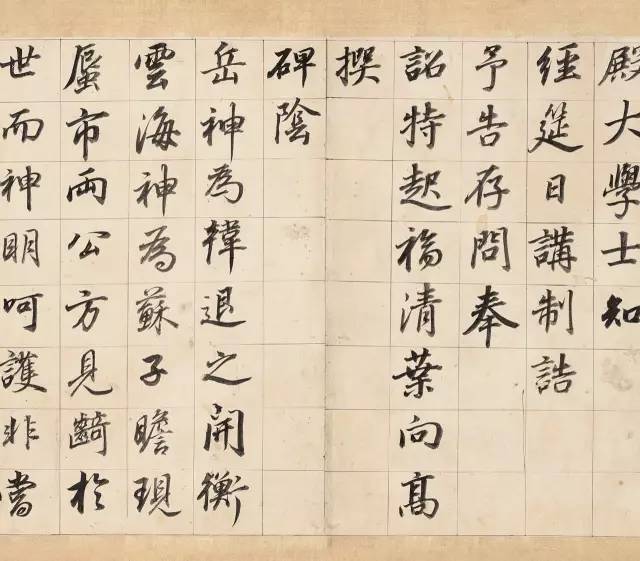 殿大學士知
經筵日講制誥
予告存問奉
詔特起福清葉向高
撰
碑陰
岳神為韓退之開衡
雲海神為蘇子瞻現
蜃市兩公方見齮於
世而神明呵護非嘗